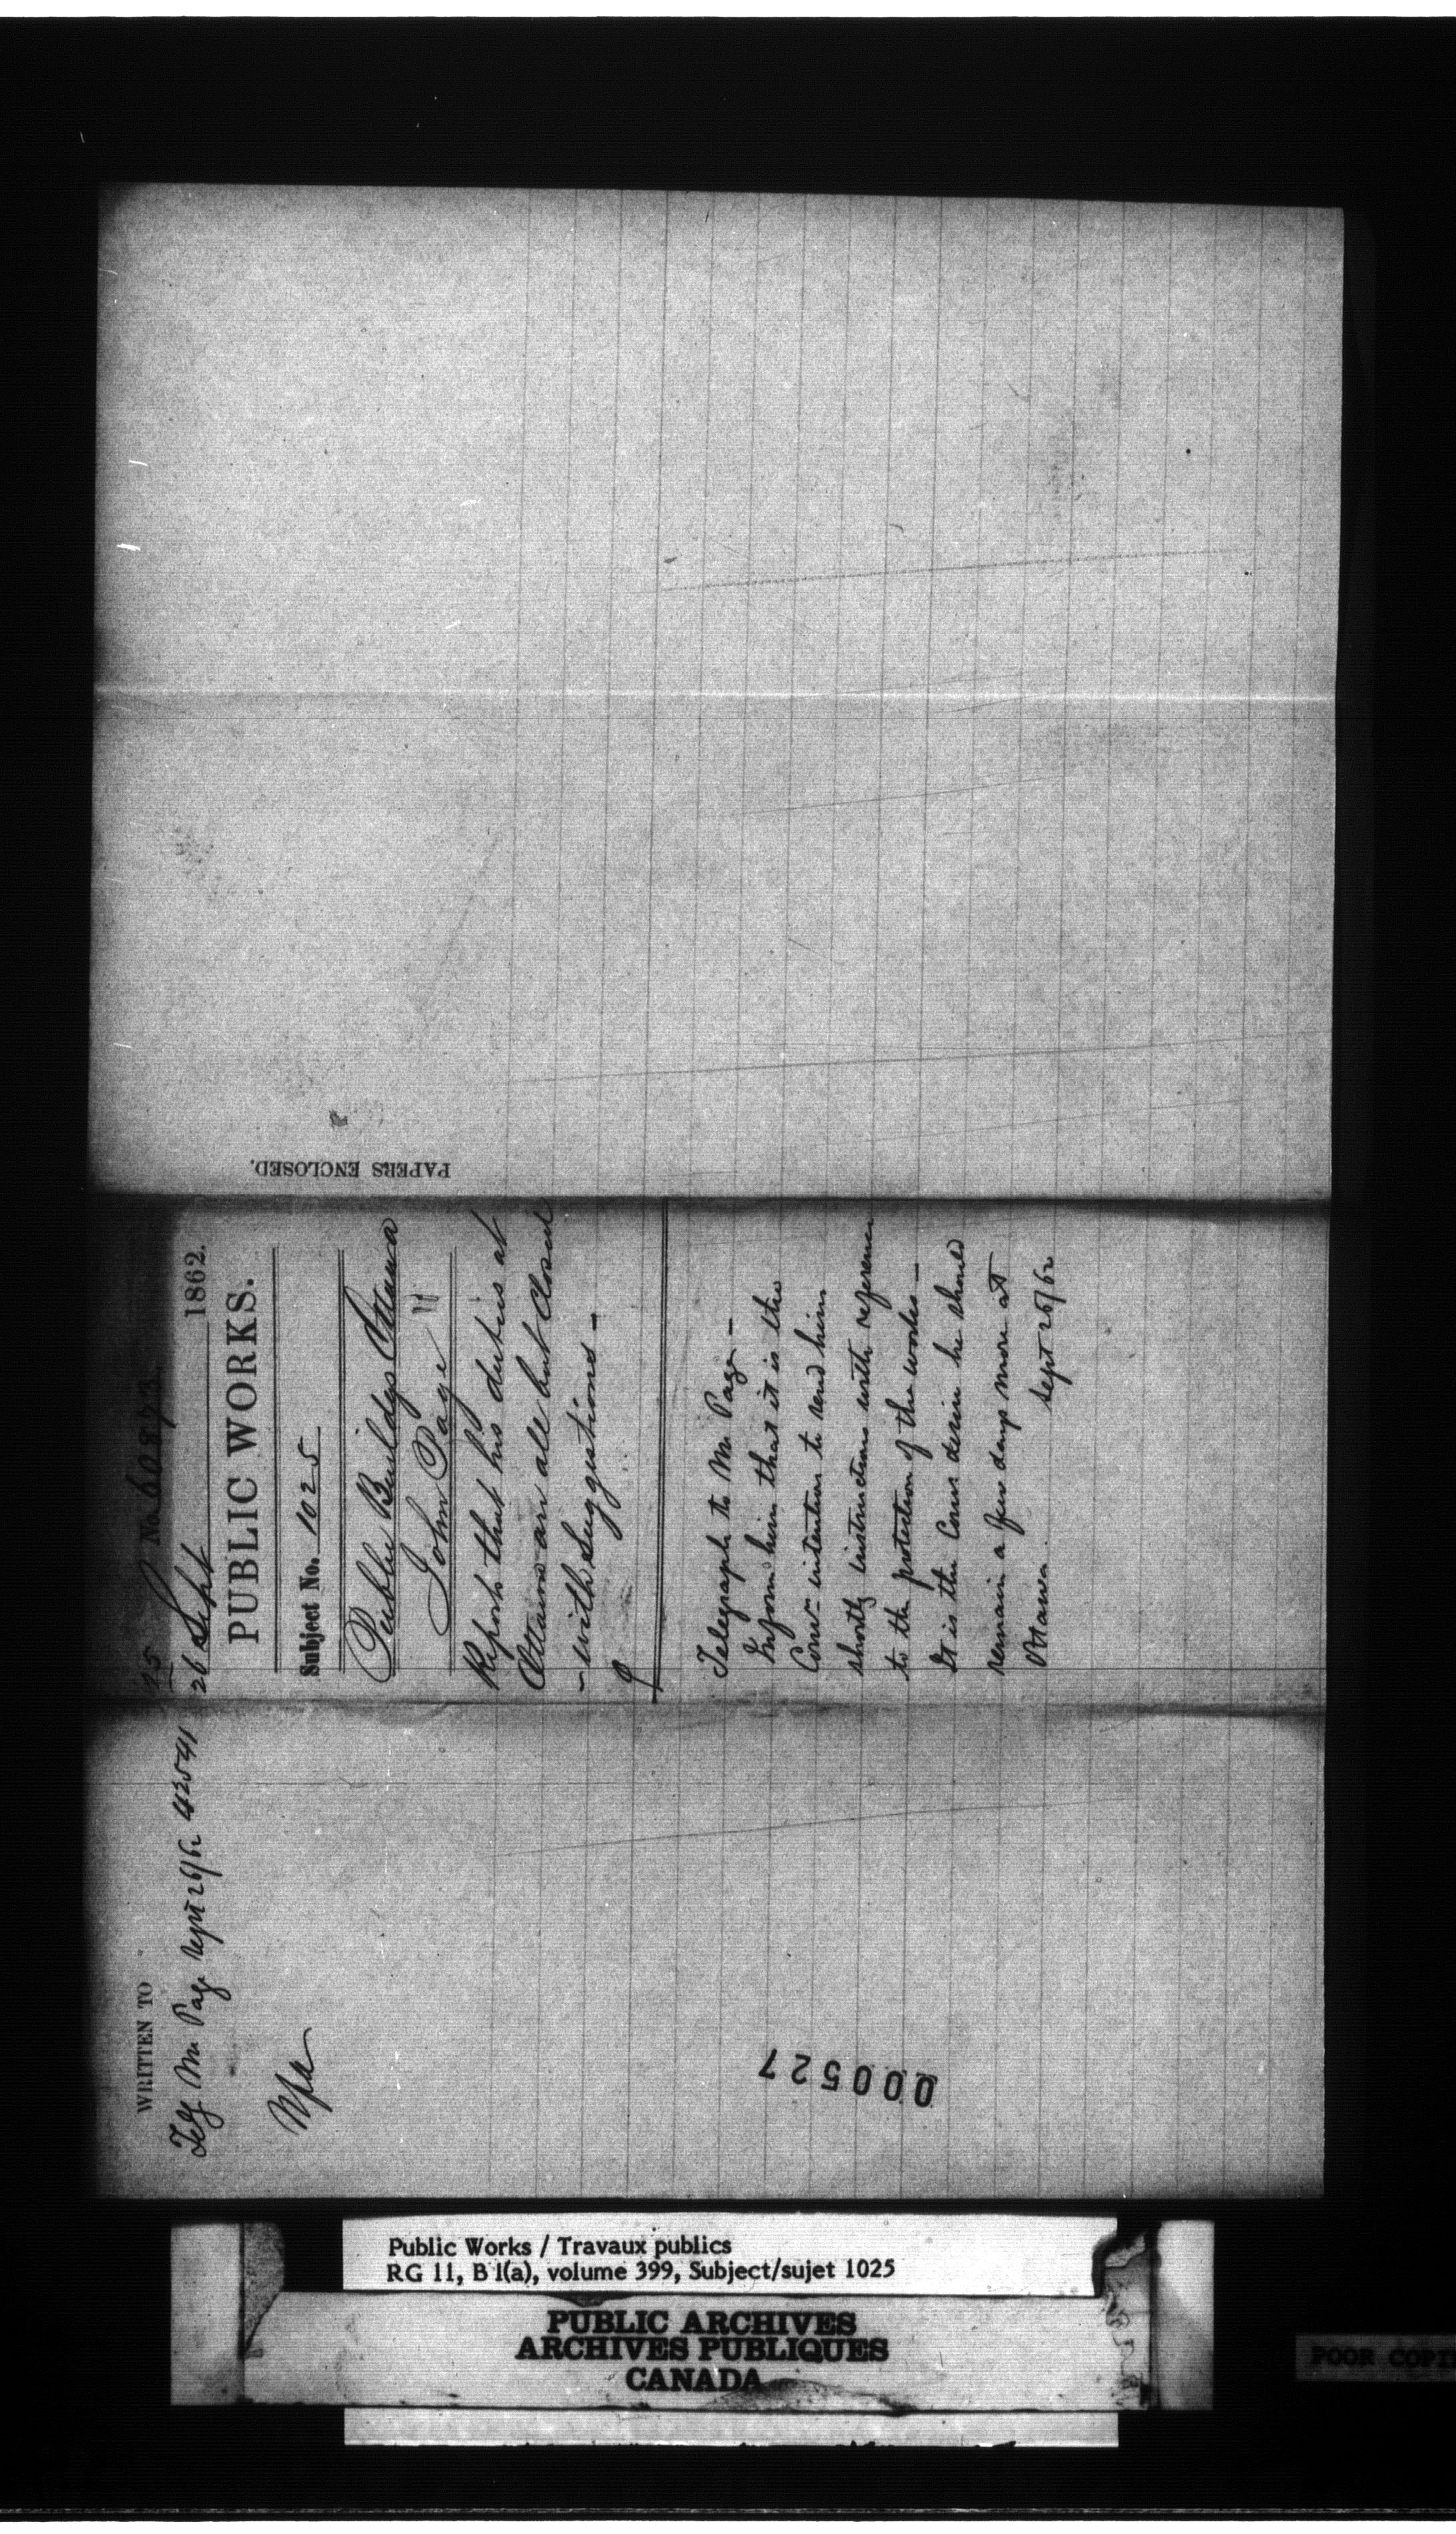 WRITTEN TO
Telg Mr Page Sept 26/62 42541
25 No. 60873
26 Sept 1862.
PUBLIC WORKS.
Subject No. 1025
Public Buildgs Ottawa
John Page
Reports that his duties at
Ottawa are all but closed
- with Suggestions -
Telegraph to Mr Page -
Inform him that it is the
Comrs intention to send him
shortly instructions with reference
to the protection of the works -
It is the Comrs desire he should
remain a few days more at
Ottawa. Sept 26/62
PAPERS ENCLOSED.
000527
Public Works / Travaux publics
RG 11, B 1(a), volume 399, Subject/sujet 1025
PUBLIC ARCHIVES
ARCHIVES PUBLIQUES
CANADA
POOR COPI